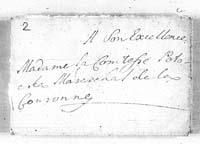 2
A Son Excellence
Madame la Comtesse Poto-
cka Mareschal de la
Couronne